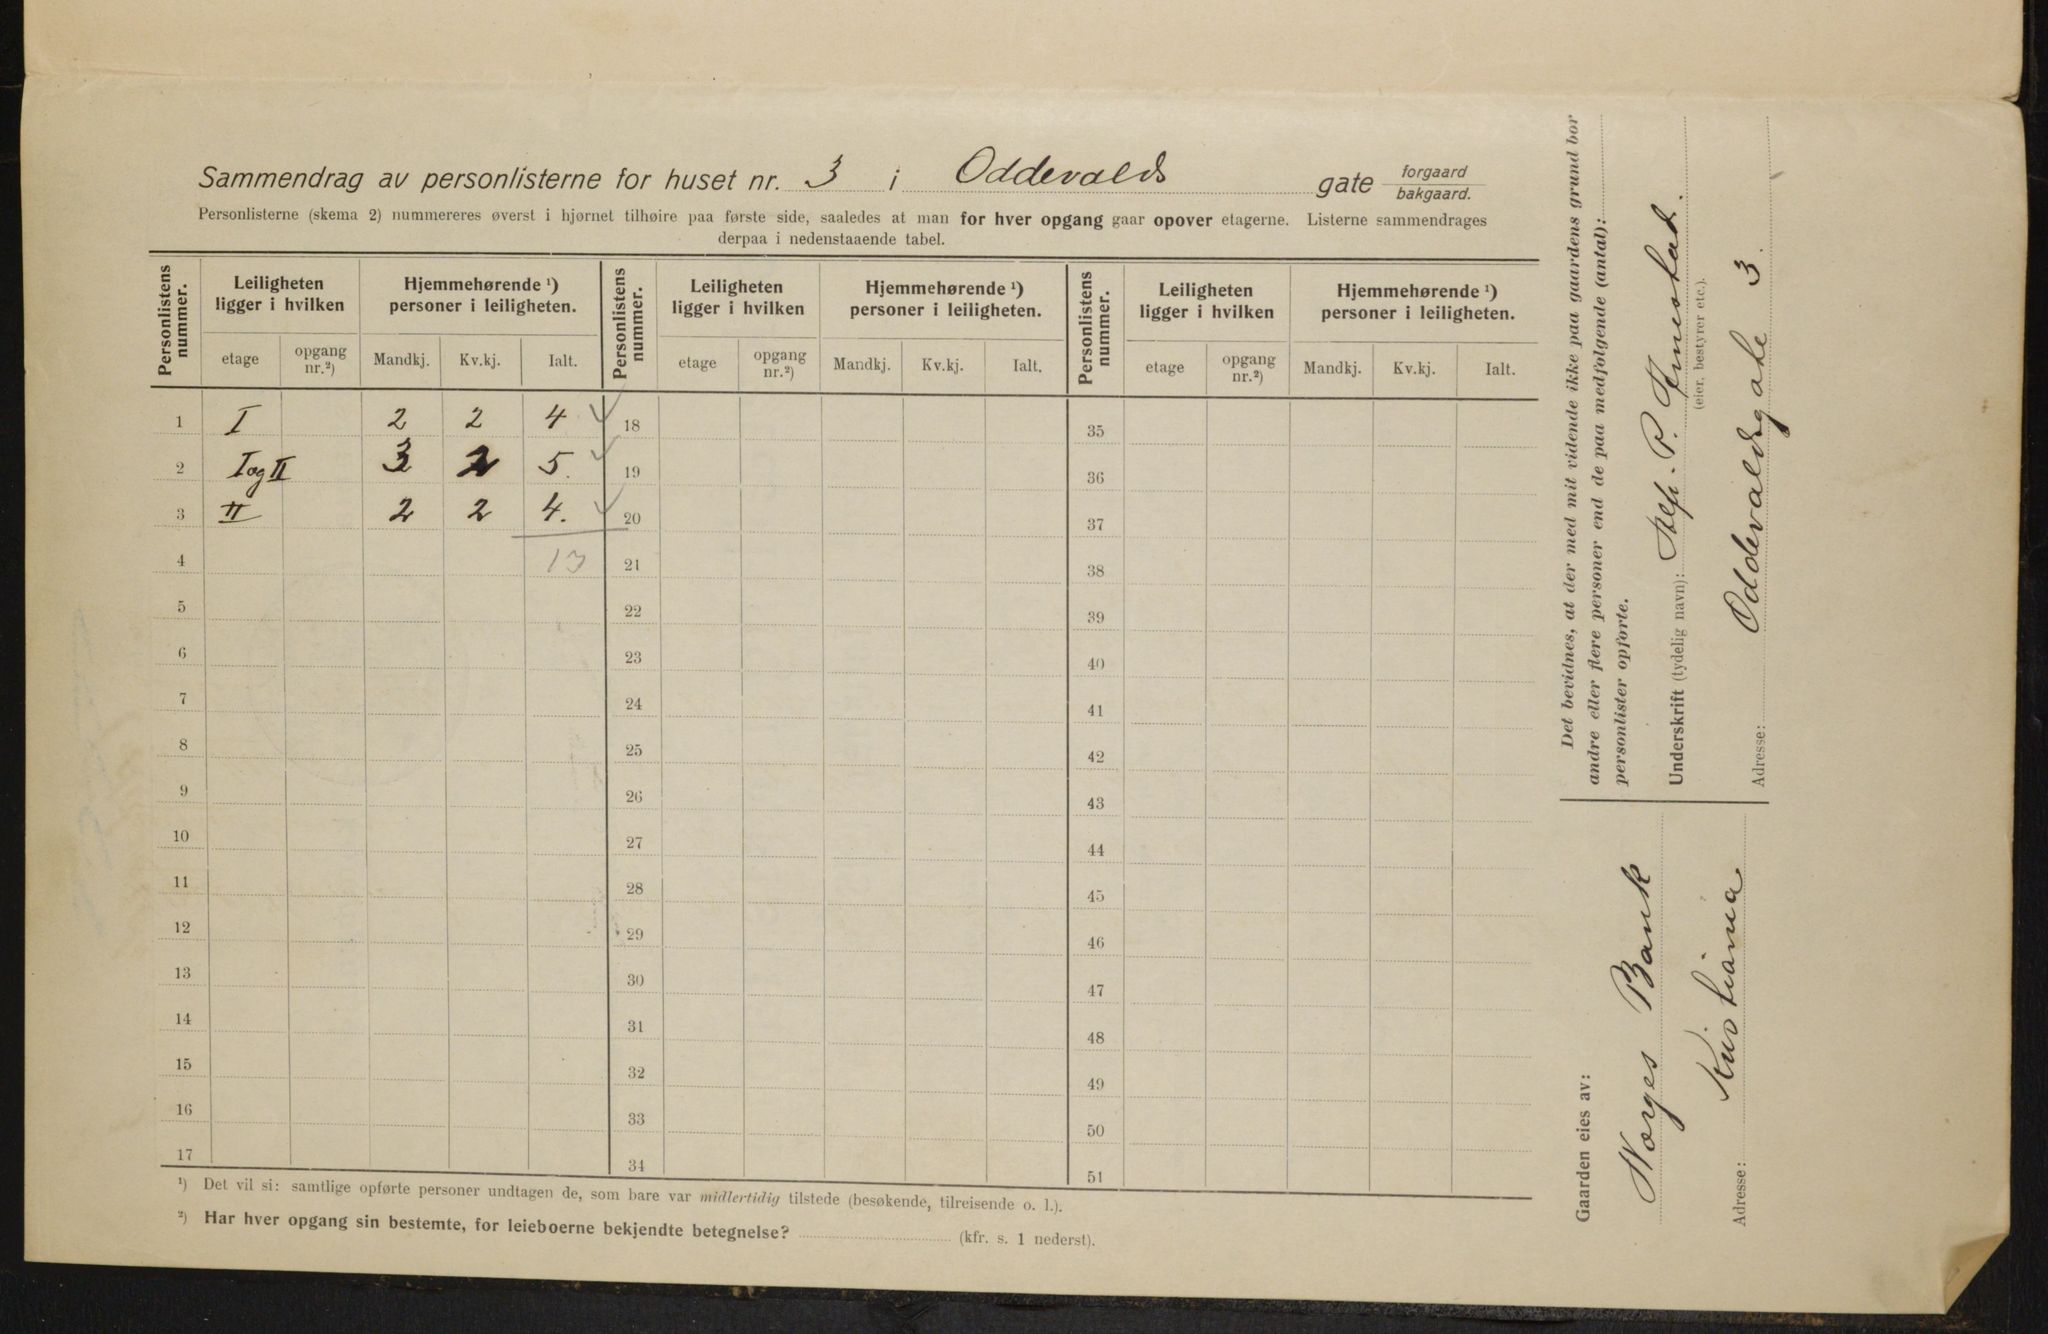 Sammendrag av personlisterne for huset nr. 3 i Oddevalds gate forgaard
bakgaard.
Personlisterne (skema 2) nummereres øverst i hjørnet tilhøire paa første side, saaledes at man for hver opgang gaar opover etagerne. Listerne sammendrages
derpaa i nedenstaaende tabel.
Personlistens nummer. Leiligheten ligger i hvilken Hjemmehørende ¹) personer i leiligheten. Personlistens nummer. Leiligheten ligger i hvilken Hjemmehørende ¹) personer i leiligheten. Personlistens nummer. Leiligheten ligger i hvilken Hjemmehørende ¹) personer i leiligheten.
etage opgang nr.²) Mandkj. Kv.kj. Ialt. etage opgang nr.²) Mandkj. Kv.kj. Ialt. etage opgang nr.²) Mandkj. Kv.kj. Ialt.
1 I 2 2 4 18 35
2 I og II 3 2 5. 19 36
3 II 2 2 4. 20 37
4 13 21 38
5 22 39
6 23 40
7 24 41
8 25 42
9 26 43
10 27 44
11 28 45
12 29 46
13 30 47
14 31 48
15 32 49
16 33 50
17 34 51
¹) Det vil si: samtlige opførte personer undtagen de, som bare var midlertidig tilstede (besøkende, tilreisende o. l.).
²) Har hver opgang sin bestemte, for leieboerne bekjendte betegnelse? (kfr. s. 1 nederst).
Det bevidnes, at der med mit vidende ikke paa gaardens grund bor
andre eller flere personer end de paa medfølgende (antal):
personlister opførte.
Underskrift (tydelig navn): P.
(eier, bestyrer etc.).
Adresse: Oddevaldsgate 3.
Gaarden eies av:
Norges Bank
Adresse: Kristiania